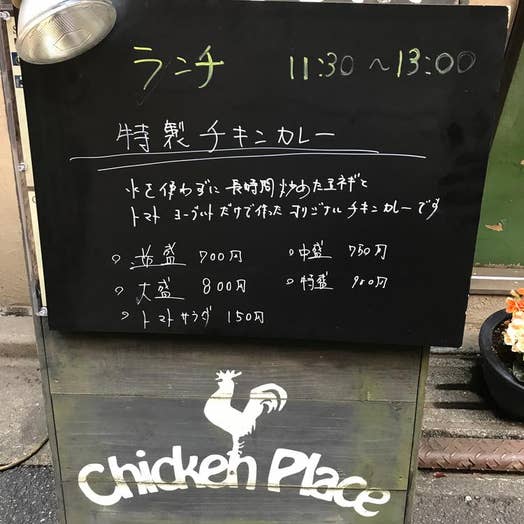 ランチ 11:30 〜 13:00
特製 チキンカレー
水を使わずに 長時間炒めた玉ネギと
トマト ヨーグルトだけで作った オリジナル チキンカレーです
。並盛 700円 。中盛 750円
。大盛 800円 。特盛 900円
。トマトサラダ 150円
Chicken Place